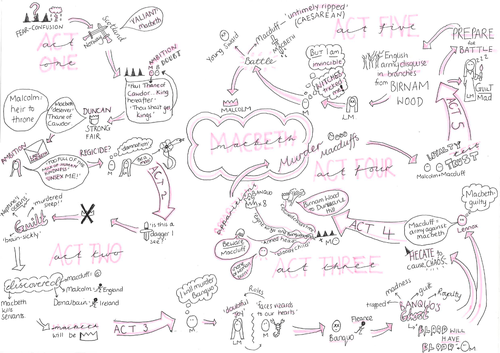 FEAR-CONFUSION
Scotland
Norway
VALIANT
Macbeth
ACT
ONE
act
one
AMBITION
DOUBT
"Thou Thane of
Cawdor... King
hereafter."
"Thou shalt get
kings."
Malcolm:
heir to
throne
Macbeth
deserves
Thane of
Cawdor
DUNCAN
STRONG
FAIR
AMBITION
LM
"TOO FULL OF
"UNSEX ME!"
REGICIDE?
"damnation"
LM
ACT 2
"is this a
dagger I
see?"
"murdered
sleep"
Guilt
"brain-sickly"
ACT TWO
act two
discovered
Macduff
Malcolm → England
Donalbain → Ireland
Macbeth
kills
servants
Macbeth
will be
ACT 3
I will murder
Banquo
"doubtful
joy"
LM
Roles
"faces vizards
to our hearts"
M
Banquo
Fleance
trapped
madness
guilt
Royalty
BANQUO'S
GHOST
"BLOOD WILL
HAVE
BLOOD"
Lennox
Macbeth:
guilty
Macduff:
army against
Macbeth
HECATE to
cause CHAOS
ACT 4
ACT THREE
act three
Birnam Wood
→ Dunsinane
Hill
apparitions
Beware
Macduff
Banquo
x 8
armed head
M
ACT FOUR
act four
Murder Macduffs
LOYALTY
TRUST
Malcolm + Macduff
ACT 5
ACT FIVE
act five
PREPARE
for
BATTLE
LM
Guilt
Mad
English
army disguise
in branches
from BIRNAM
WOOD
But I am
invincible
WITCHES
tricked
me
LM
M
Battle
Young Siward
Macduff
"untimely ripped"
(CAESAREAN)
MALCOLM
MACBETH
macbeth